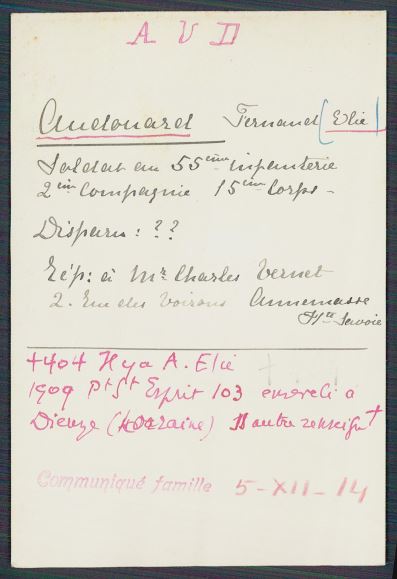 A V D
Audouard Fernand (Elie)
Soldat au 55ème infanterie
2ème Compagnie 15ème Corps -
Disparu : ??
Rép: à Mr Charles Vernet
2. Rue des Voirons Annemasse
Hte Savoie
+404 Il y a A. Elie
1909 Pt St Esprit 103 enseveli à
Dieuze (Lorraine) sans autre renseignt
Communiqué famille 5-XII-14